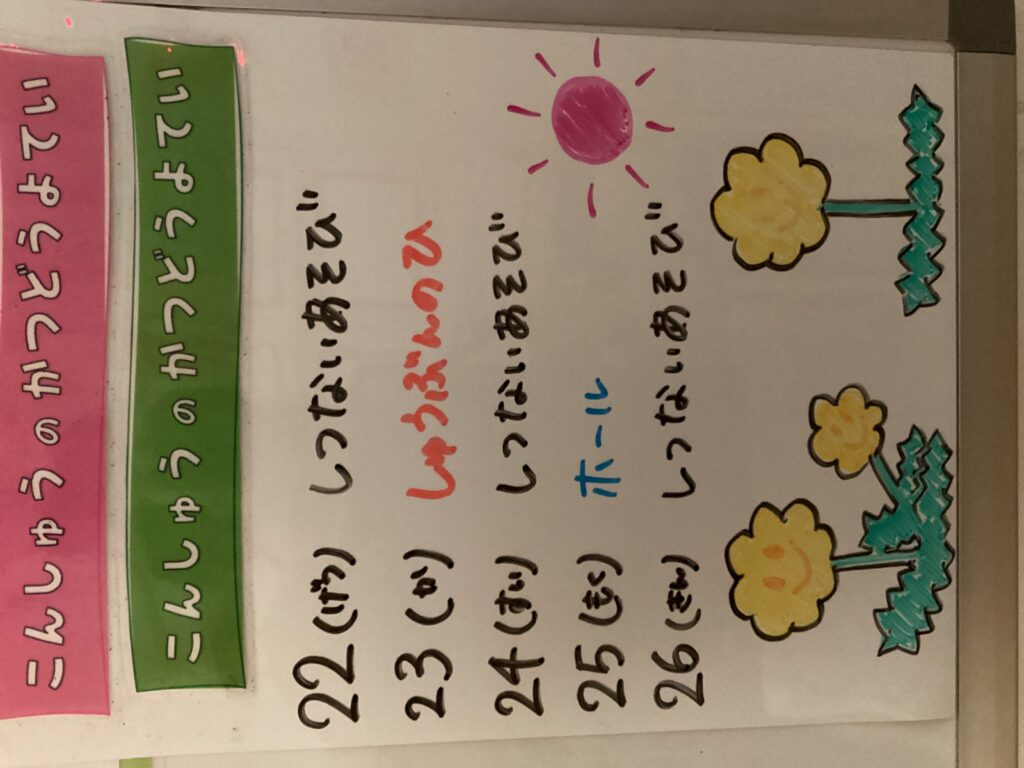 こんしゅうのかつどうよてい
こんしゅうのかつどうよてい
22(げつ) しつないあそび
23(か) しゅうぶんのひ
24(すい) しつないあそび
25(もく) ホール
26(きん) しつないあそび